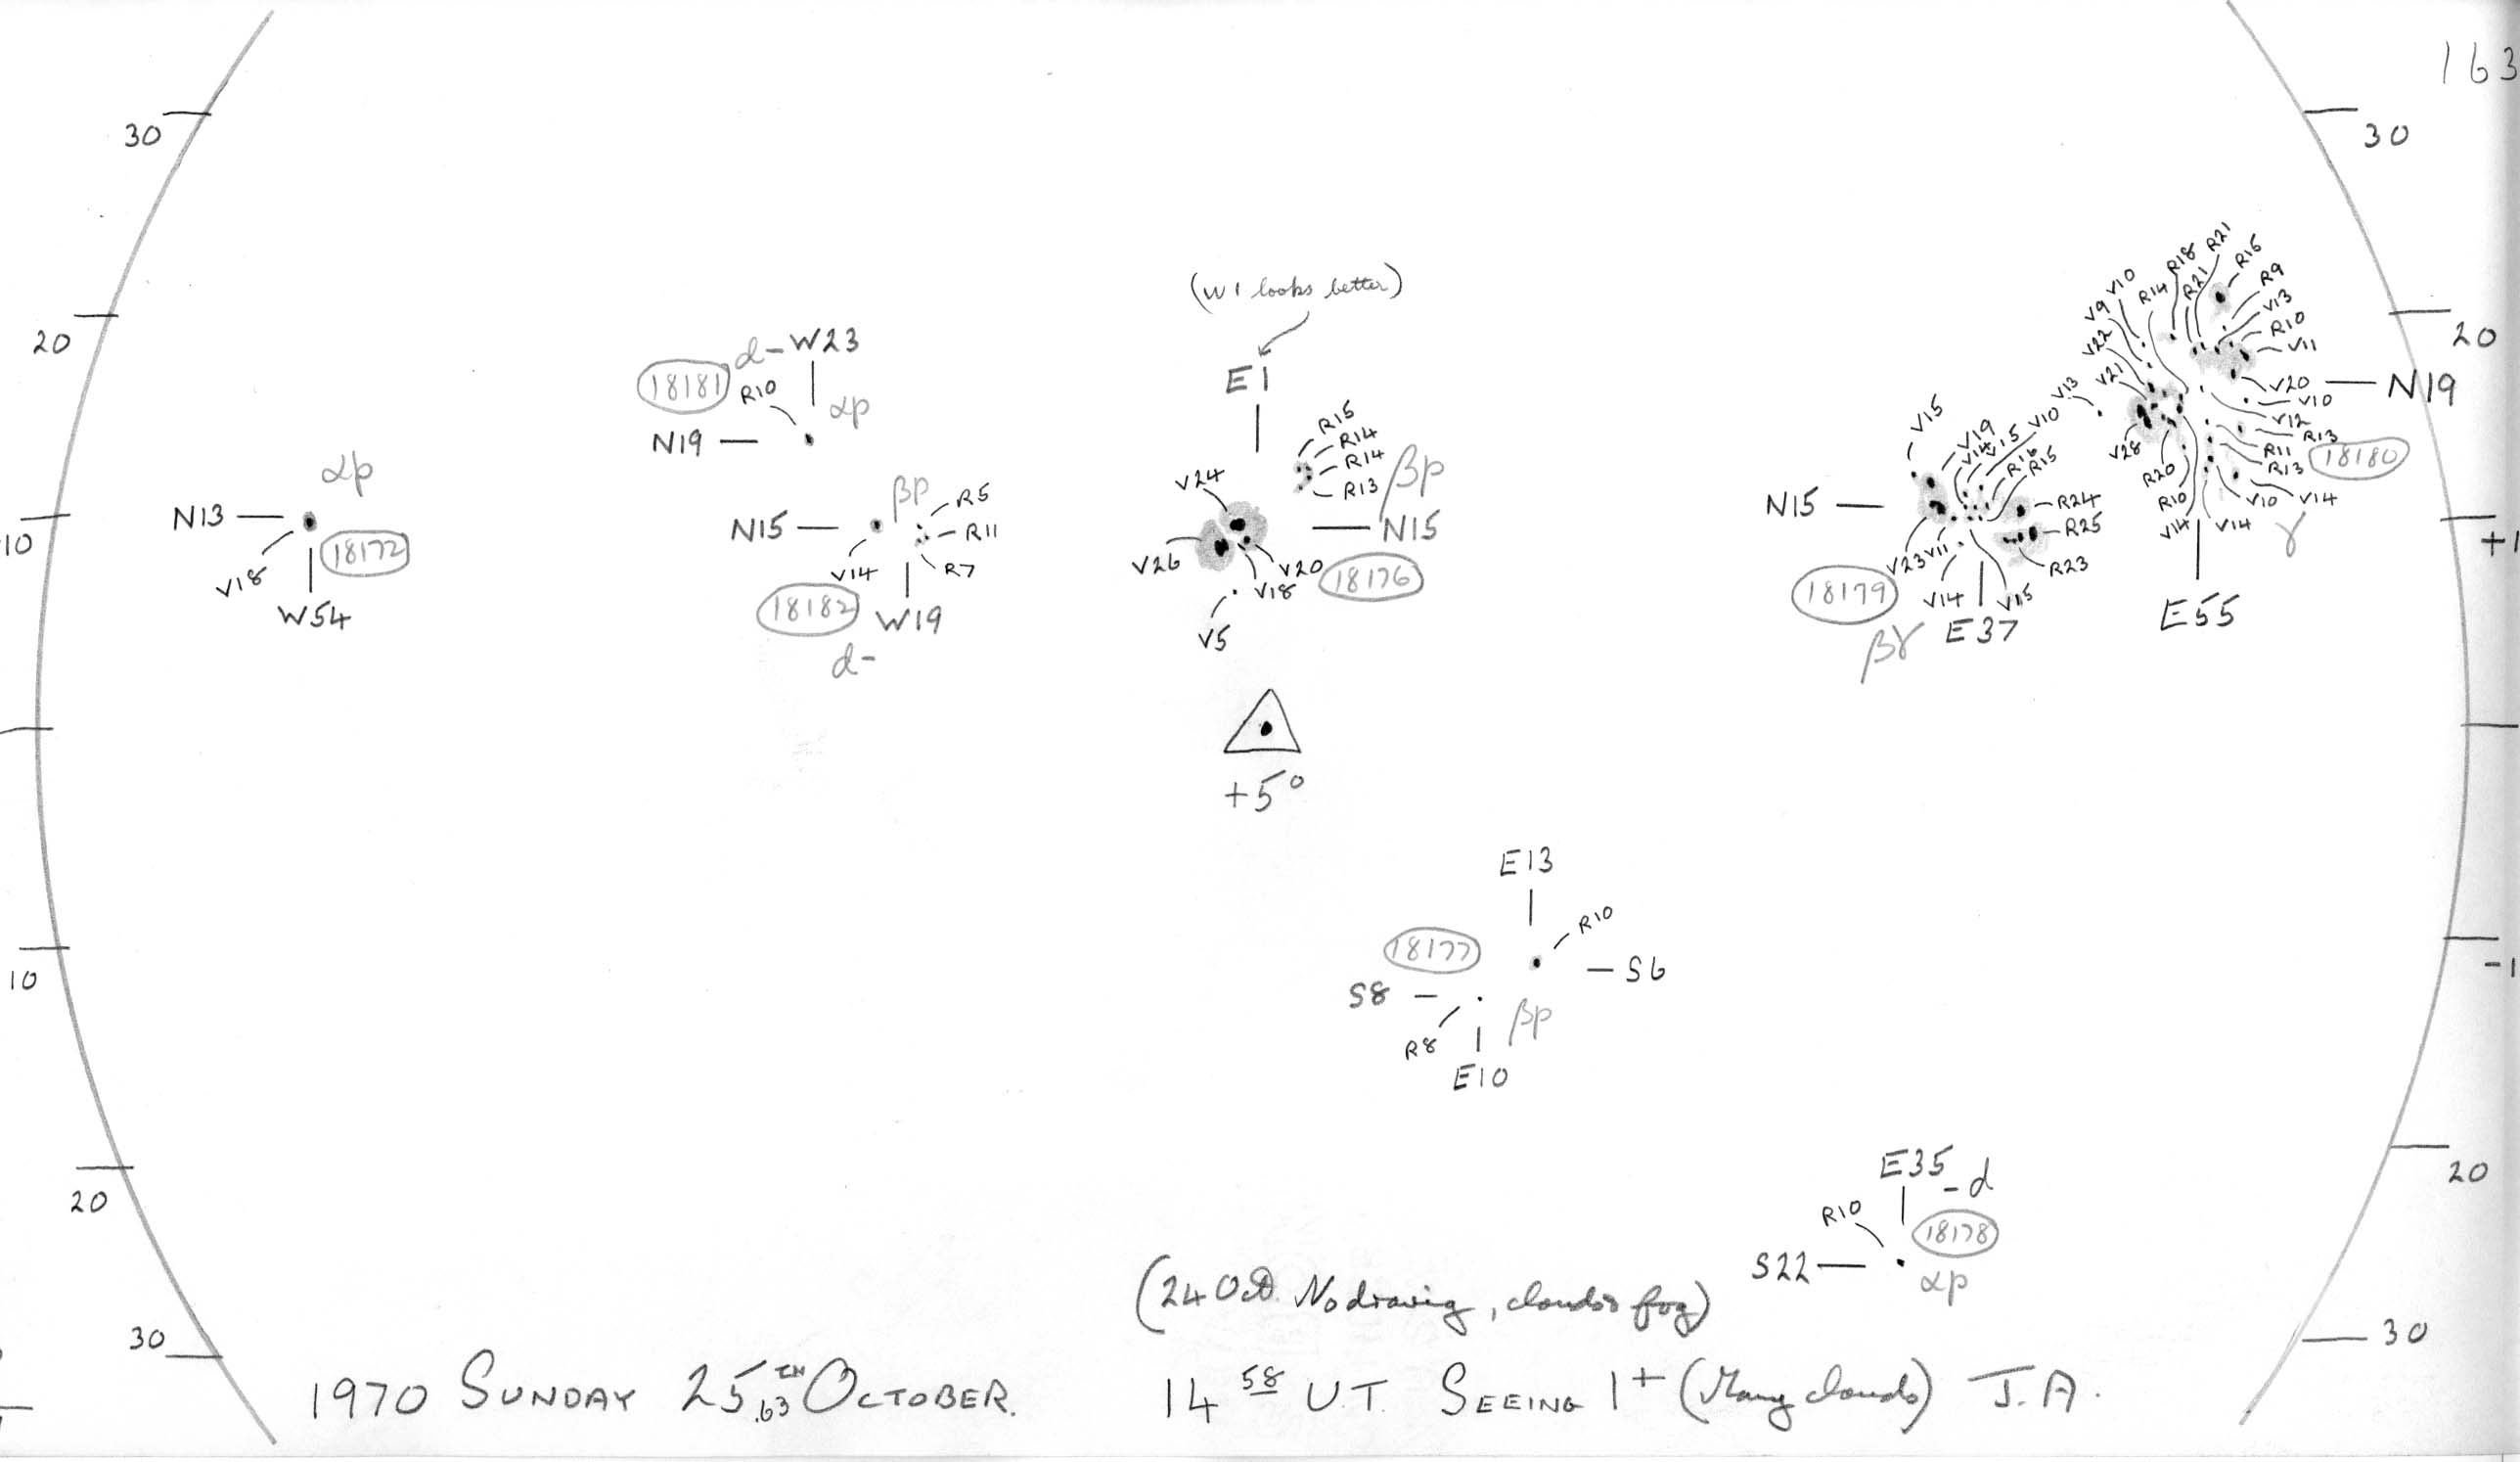 163
30
30
20
20
10
+1
10
-1
20
20
30
30
(W1 looks better)
E1
d- W23
18181
R10
αp
N19
αp
N13
18172
V18
W54
βp
R5
N15
R11
V14
R7
18182
W19
d-
R15
R14
R14
R13
βp
V24
N15
V26
V20
V18
18176
V5
+5°
V15
V19
V14
V15
V10
R16
R15
N15
R24
R25
R23
V23
V11
18179
V14
V15
βγ
E37
R21
R18
R16
V10
R21
R9
R14
V13
V9
R10
V22
V11
V21
V20
N19
V13
V10
V12
R13
V28
R11
18180
R13
R20
R10
V10
V14
V14
V14
γ
E55
E13
R10
18177
S6
S8
βp
R8
E10
E35
-d
R10
18178
S22
αp
(24 Oct. No drawing, clouds & fog)
1970 SUNDAY 25.63TH OCTOBER. 14 58 U.T. SEEING 1+ (Many clouds) J.A.